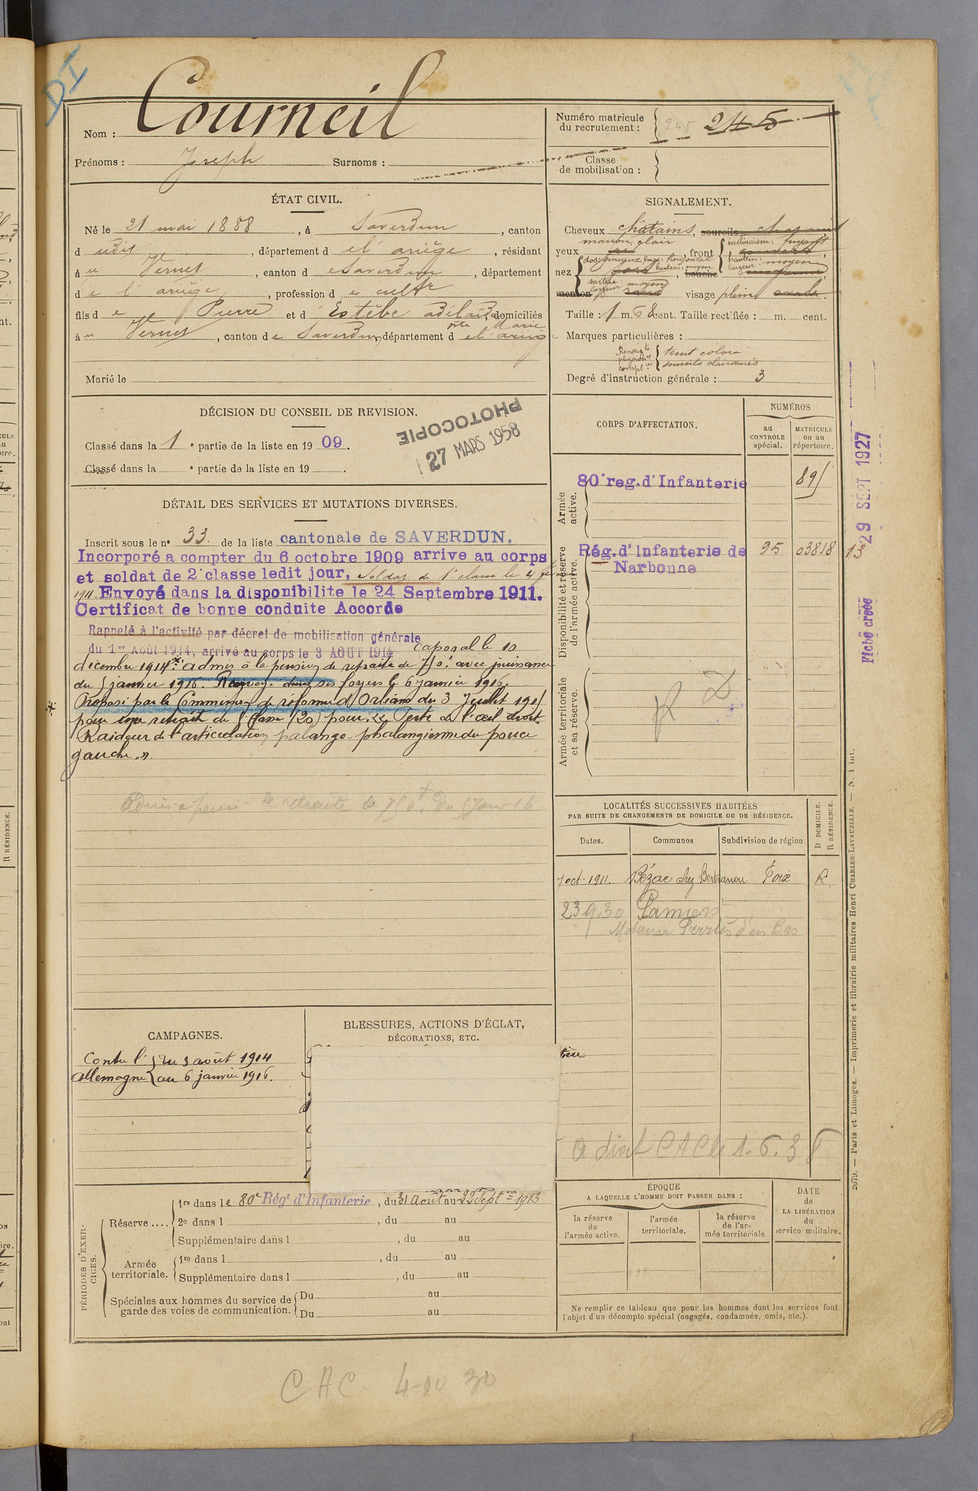 DI
Nom : Courneil
Prénoms : Joseph Surnoms :
Numéro matricule du recrutement : 245 245
Classe de mobilisation :
ÉTAT CIVIL.
Né le 21 mai 1888, à Saverdun, canton
dudit, département de l'ariège, résidant
à u Vernet, canton de Saverdun, département
de l'ariège, profession de cultr
fils de Pierre et d Estèbe domiciliés
Marie
à u Vernet, canton de Saverdun, département de l'arieg
Marié le
SIGNALEMENT.
Cheveux châtains, sourcils
marron clair
yeux , front inclinaison :
nez hauteur : moyen
saillie
menton visage plein ovale.
Taille : 1 m. cent. Taille rectifiée : m. cent.
Marques particulières :
teint coloré
Degré d'instruction générale : 3
DÉCISION DU CONSEIL DE REVISION.
Classé dans la 1 e partie de la liste en 1909.
Classé dans la e partie de la liste en 19 .
PHOTOCOPIE
27 MARS 1958
DÉTAIL DES SERVICES ET MUTATIONS DIVERSES.
Inscrit sous le n° 33 de la liste cantonale de SAVERDUN.
Incorporé a compter du 6 octobre 1909 arrive au corps
et soldat de 2e classe ledit jour, Soldat de 1e classe le 4
1911. Envoyé dans la disponibilite le 24 Septembre 1911.
Certificat de bonne conduite Accorde
Rappelé à l'activité par décret de mobilisation générale
du 1er Août 1914, arrivé au corps le 3 AOUT 1914 Caporal le 10
décembre 1914. admis à la pension de retraite de avec jouissance
du 5 janvier 1916. Renvoyé dans ses foyers le 6 janvier 1916.
Proposé par la Commission de réforme d'Orléans du 3 Juillet 191
pour une retraite de 5e classe pour Perte de l'œil droit.
Raideur de l'articulation phalango phalangienne du pouce
gauche. "
CORPS D'AFFECTATION.
NUMÉROS
au CONTROLE spécial.
MATRICULE ou au répertoire.
Armée active.
80e reg. d'Infanterie
Disponibilité et réserve de l'armée active.
Rég. d'Infanterie de Narbonne 95 03818 13
Armée territoriale et sa réserve.
29 SEPT 1927
Fiche créée
LOCALITÉS SUCCESSIVES HABITÉES
PAR SUITE DE CHANGEMENTS DE DOMICILE OU DE RÉSIDENCE.
D DOMICILE. R RÉSIDENCE.
Dates. Communes Subdivision de région.
7 oct. 1911. Bézac chez Bertranou Foix R
23 9 30 Pamiers
CAMPAGNES.
Contre l' du 3 août 1914
allemagne au 6 janvier 1916.
BLESSURES, ACTIONS D'ÉCLAT,
DÉCORATIONS, ETC.
1. 6. 38
PÉRIODES D'EXERCICES.
Réserve .... 1re dans le 80e Rég' d'Infanterie, du 31 Août au 22 Sept 1913
2e dans l , du au
Supplémentaire dans l , du au
Armée territoriale. 1re dans l , du au
Supplémentaire dans l , du au
Spéciales aux hommes du service de garde des voies de communication. Du au
Du au
ÉPOQUE
A LAQUELLE L'HOMME DOIT PASSER DANS :
la réserve de l'armée active.
l'armée territoriale.
la réserve de l'armée territoriale.
DATE de LA LIBÉRATION du service militaire.
Ne remplir ce tableau que pour les hommes dont les services font
l'objet d'un décompte spécial (engagés, condamnés, omis, etc.).
2679. — Paris et Limoges. — Imprimerie et librairie militaires Henri CHARLES-LAVAUZELLE. — N. 1 int.
CAC. 4-10 30